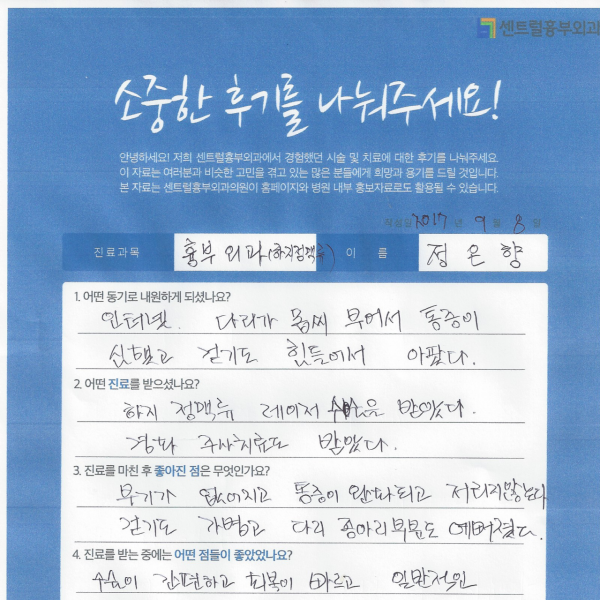 센트럴흉부외과
소중한 후기를 나눠주세요!
안녕하세요! 저희 센트럴흉부외과에서 경험했던 시술 및 치료에 대한 후기를 나눠주세요.
이 자료는 여러분과 비슷한 고민을 겪고 있는 많은 분들에게 희망과 용기를 드릴 것입니다.
본 자료는 센트럴흉부외과의원이 홈페이지와 병원 내부 홍보자료로도 활용될 수 있습니다.
작성일 2017 년 9 월 8 일
진료과목 흉부외과(하지정맥류) 이 름 정은향
1. 어떤 동기로 내원하게 되셨나요?
인터넷. 다리가 몹씨 부어서 통증이
심했고 걷기도 힘들어서 아팠다.
2. 어떤 진료를 받으셨나요?
하지 정맥류 레이저 수술을 받았다.
경화 주사치료도 받았다.
3. 진료를 마친 후 좋아진 점은 무엇인가요?
부기가 없어지고 통증이 완화되고 저리지않는다
걷기도 가볍고 다리 종아리부분도 예뻐졌다.
4. 진료를 받는 중에는 어떤 점들이 좋았었나요?
수술이 간편하고 회복이 빠르고 일반적인